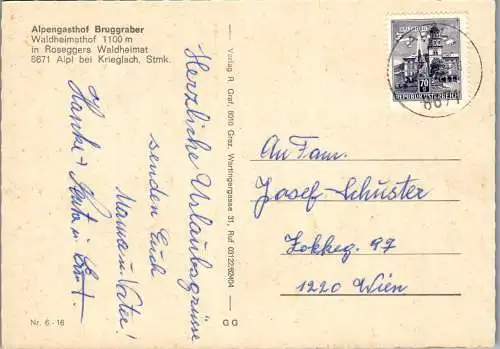 Alpengasthof Bruggraber
Waldheimathof 1100 m
in Roseggers Waldheimat
8671 Alpl bei Krieglach, Stmk.
Herzliche Urlaubsgrüsse
senden Euch
Mama u. Vater!
Verlag R. Graf, 8010 Graz, Wartingergasse 31, Ruf 03122/62404
70
REPUBLIK ÖSTERREICH
8671
An Fam.
Josef Schuster
Lokkeg. 97
1220 Wien
Nr. 6 - 16
G G